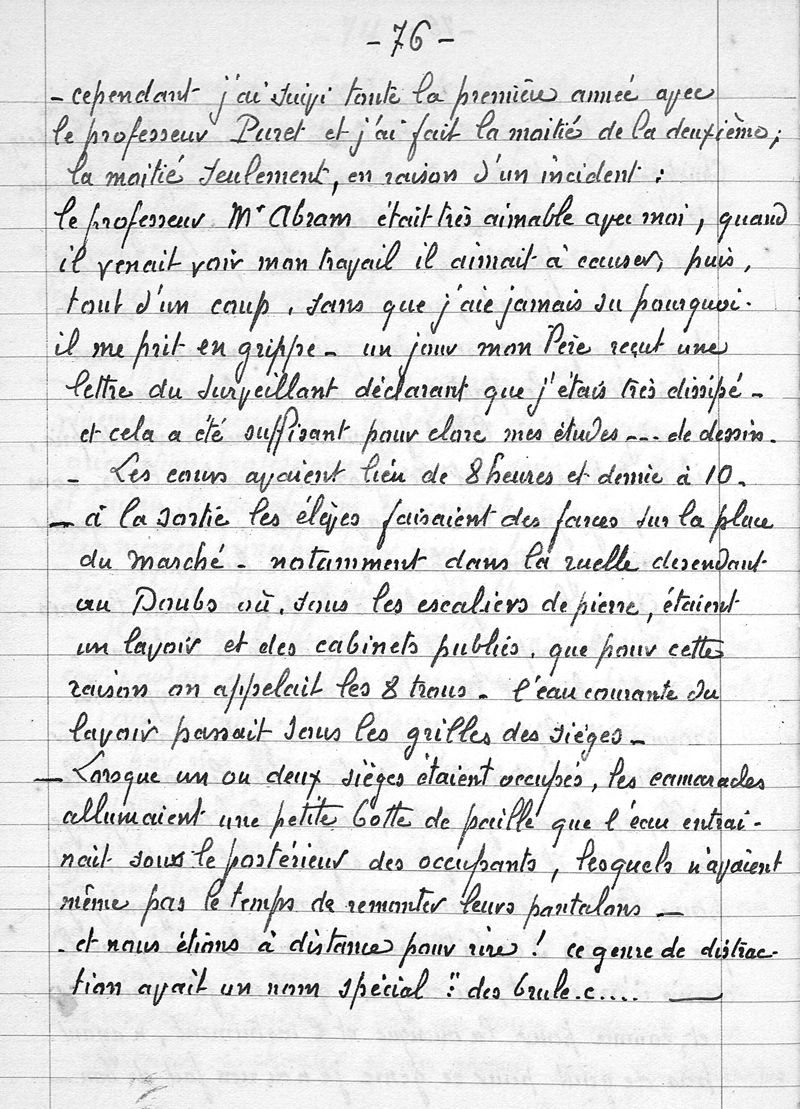 - 76 -
- cependant j'ai suivi toute la première année avec
le professeur Puret et j'ai fait la moitié de la deuxième;
la moitié seulement, en raison d'un incident :
le professeur Mr Abram était très aimable avec moi, quand
il venait voir mon travail il aimait à causer, puis,
tout d'un coup, sans que j'aie jamais su pourquoi.
il me prit en grippe - un jour mon Père reçut une
lettre du surveillant déclarant que j'étais très dissipé -
et cela a été suffisant pour clore mes études --- de dessin.
- Les cours avaient lieu de 8 heures et demie à 10.
- à la sortie les élèves faisaient des farces sur la place
du marché - notamment dans la ruelle descendant
au Doubs où, sous les escaliers de pierre, étaient
un lavoir et des cabinets publics, que pour cette
raison on appelait les 8 trous - l'eau courante du
lavoir passait sous les grilles des sièges -
- Lorsque un ou deux sièges étaient occupés, les camarades
allumaient une petite botte de paille que l'eau entrai-
nait sous le postérieur des occupants, lesquels n'avaient
même pas le temps de remonter leurs pantalons -
- et nous étions à distance pour rire ! ce genre de distrac-
tion avait un nom spécial : " des brule.c.... —